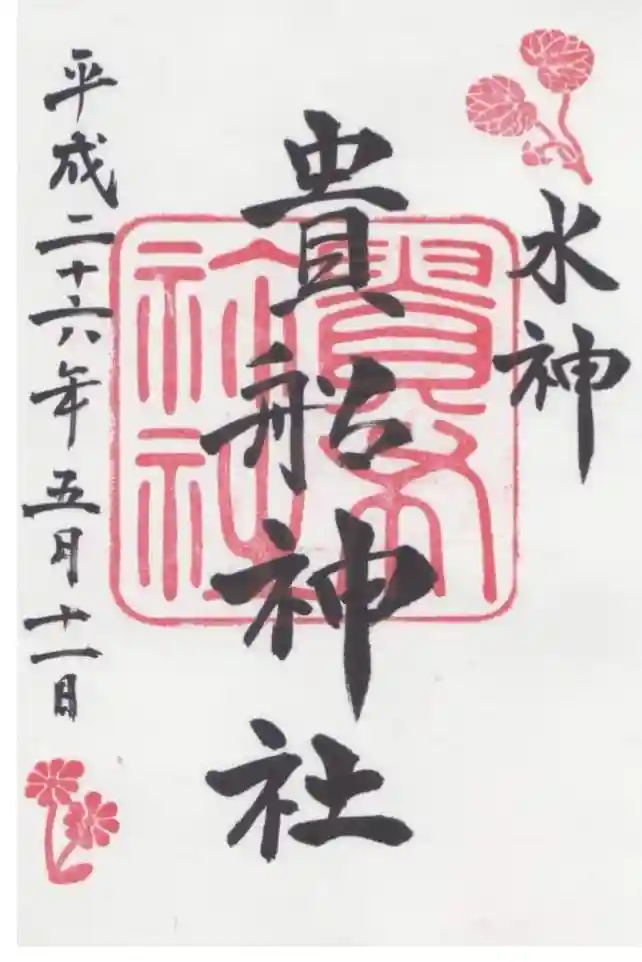 水神
貴船神社
平成二十六年五月十一日